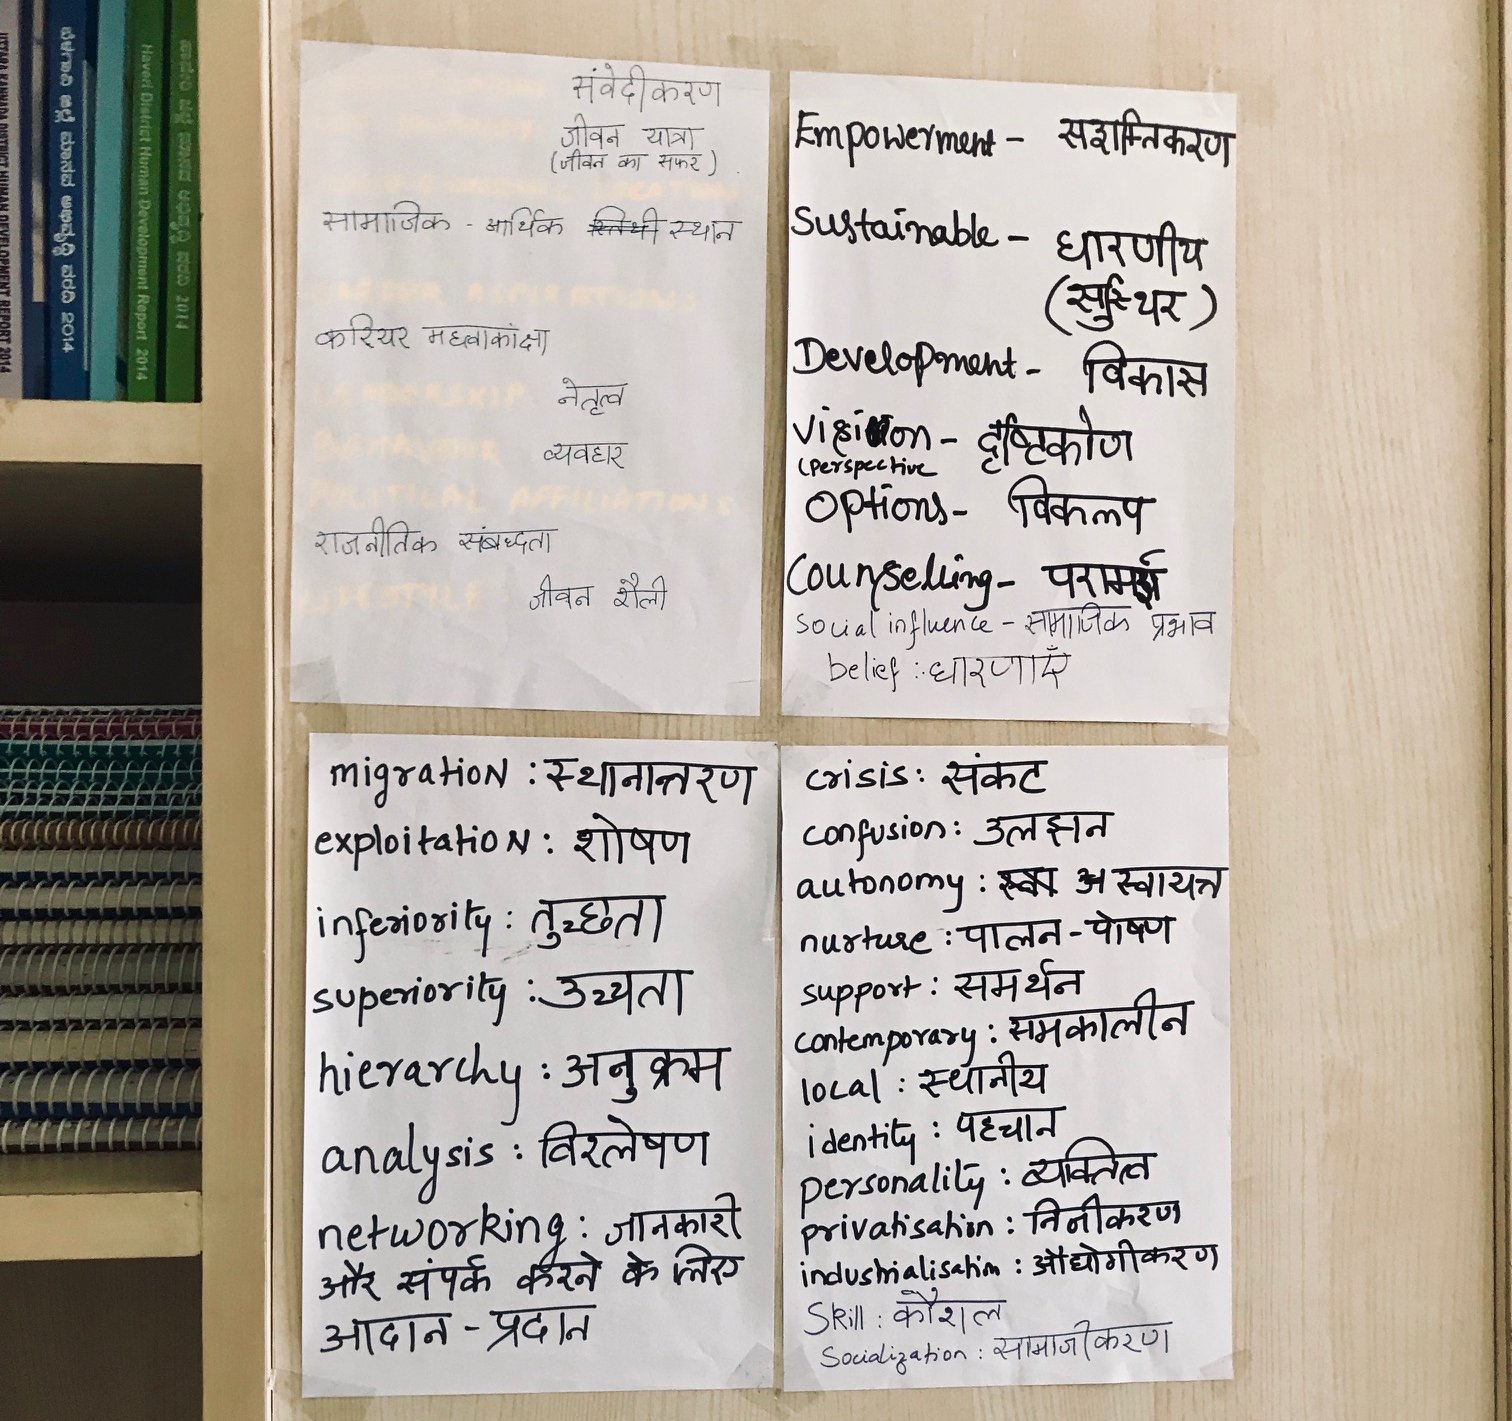 UTTARA KANNADA DISTRICT HUMAN DEVELOPMENT REPORT 2014
Haveri District Human Development Report 2014
संवेदीकरण
जीवन यात्रा
(जीवन का सफर)
सामाजिक - आर्थिक स्थान
CAREER ASPIRATIONS
करियर महत्वाकांक्षा
LEADERSHIP नेतृत्व
BEHAVIOUR व्यवहार
POLITICAL AFFILIATIONS
राजनीतिक संबध्दता
LIFESTYLE जीवन शैली
Empowerment - सशक्तिकरण
Sustainable - धारणीय
(सुस्थिर)
Development - विकास
Vision - दृष्टिकोण
(perspective
Options - विकल्प
Counselling - परामर्श
social influence - सामाजिक प्रभाव
belief : धारणाएँ
migration : स्थानान्तरण
exploitation : शोषण
inferiority : तुच्छता
superiority : उच्चता
hierarchy : अनुक्रम
analysis : विश्लेषण
networking : जानकारी
और संपर्क करने के लिए
आदान - प्रदान
crisis : संकट
confusion : उलझन
autonomy : स्वायत्त
nurture : पालन - पोषण
support : समर्थन
contemporary : समकालीन
local : स्थानीय
identity : पहचान
personality : व्यक्तित्व
privatisation : निजीकरण
industrialisation : औद्योगीकरण
Skill : कौशल
Socialization : सामाजीकरण